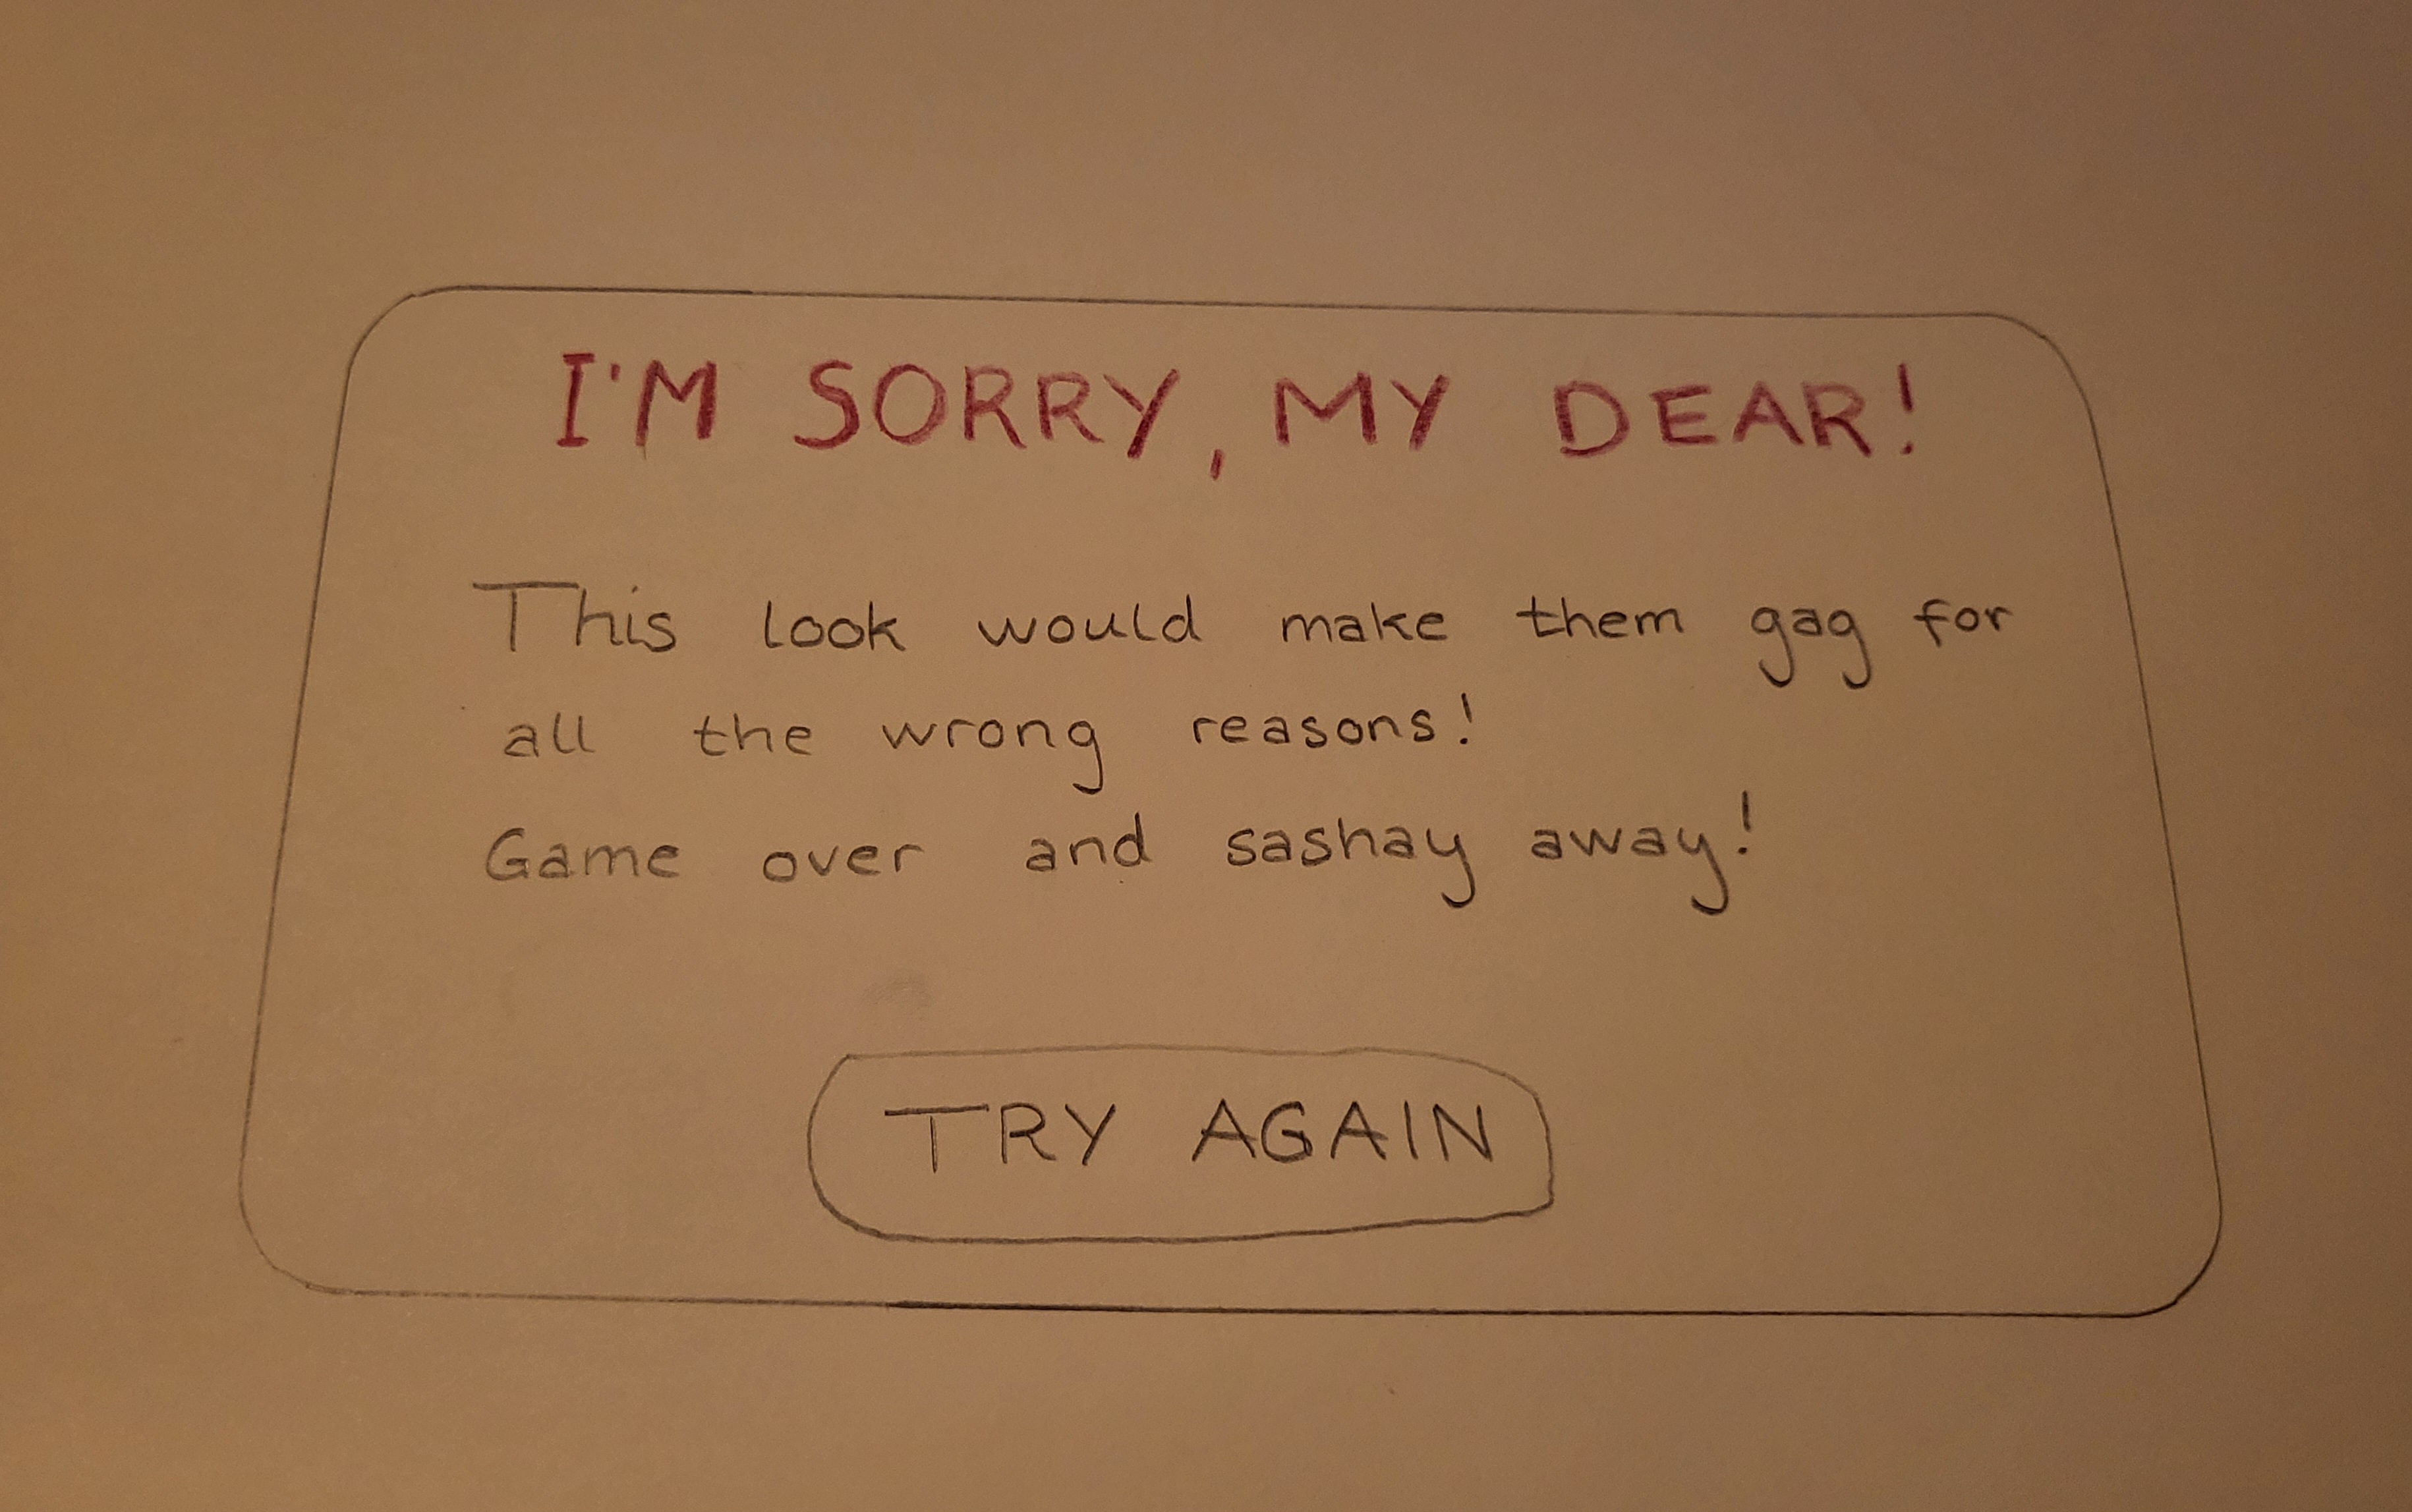 I'M SORRY, MY DEAR!
This look would make them gag for
all the wrong reasons!
Game over and sashay away!
TRY AGAIN